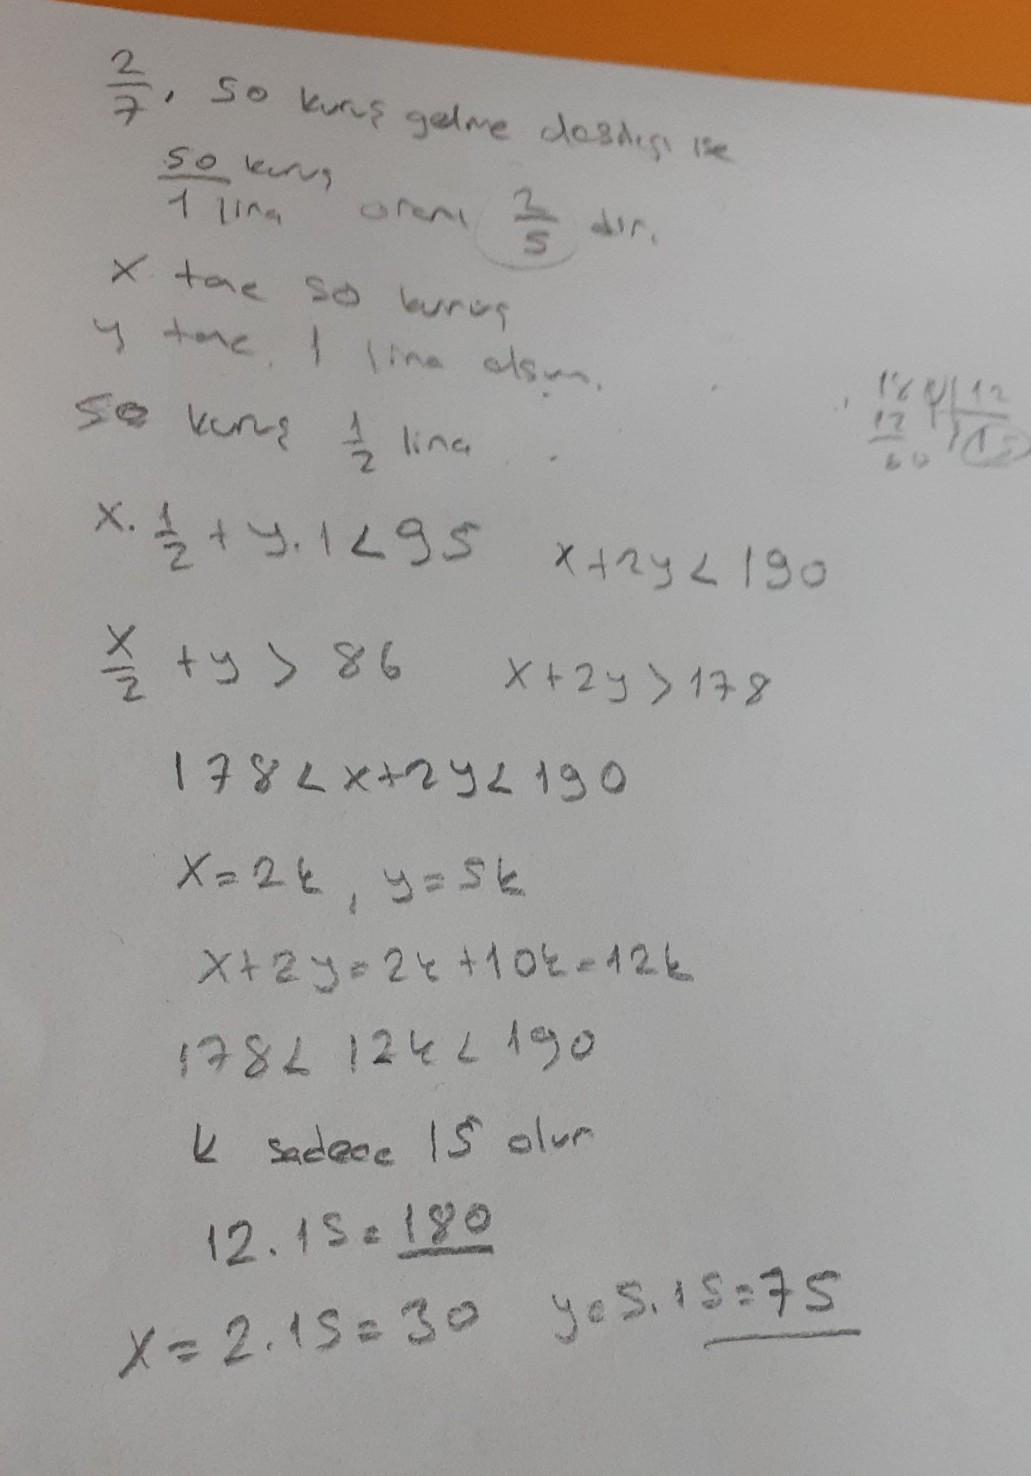 2/7, 50 kuruş gelme olasılığı ise
50 kuruş / 1 lira oranı 2/5 dir.
x tane 50 kuruş
y tane 1 lira olsun.
50 kuruş 1/2 lira
x. 1/2 + y.1 < 95 x+2y < 190
x/2 + y > 86 x+2y > 178
178 < x+2y < 190
x=2k, y=5k
x+2y=2k+10k=12k
178 < 12k < 190
k sadece 15 olur
12.15=180
x=2.15=30 y=5.15=75
12
15
60